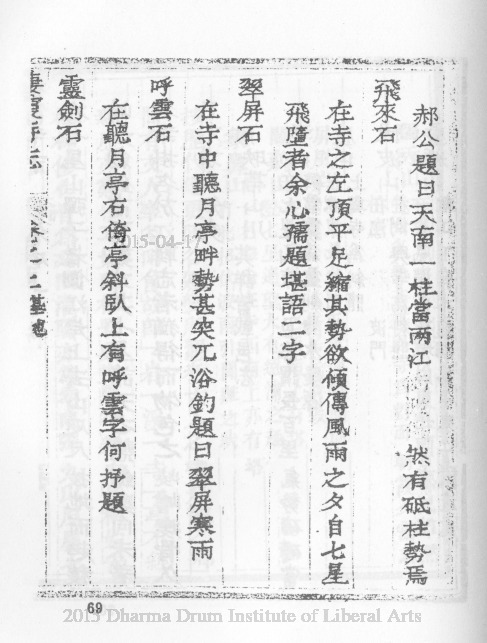 郝公題曰天南一柱當兩江 然有砥柱勢焉
飛來石
在寺之左頂平足縮其勢欲傾傳風雨之夕自七星
飛墮者余心孺題堪語二字
翠屏石
在寺中聽月亭畔勢甚突兀浴釣題曰翠屏寒雨
呼雲石
在聽月亭右倚亭斜臥上有呼雲字何抒題
靈劍石
棲霞寺志
2015-04-17
69
2015 Dharma Drum Institute of Liberal Arts